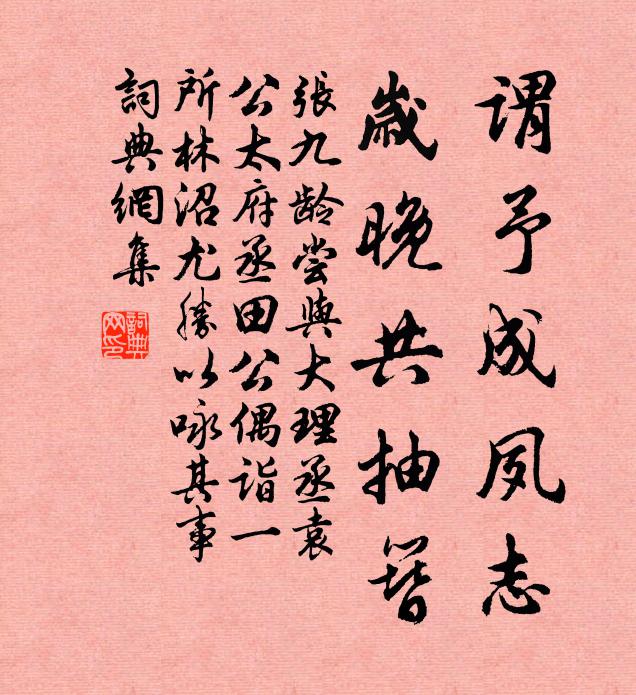 谓予成夙志
歲晚共抽簪
張九龄嘗與大理丞袁
公太府丞田公偶詣一
所林沼尤勝以咏其事
詞典網集
詞典
网印